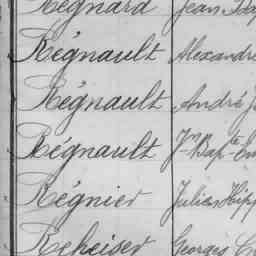 Régnard Jean Bap
Régnault Alexandre
Régnault André J
Régnault Jn Bapte Em
Régnier Julien Hipp
Reheiser Georges C